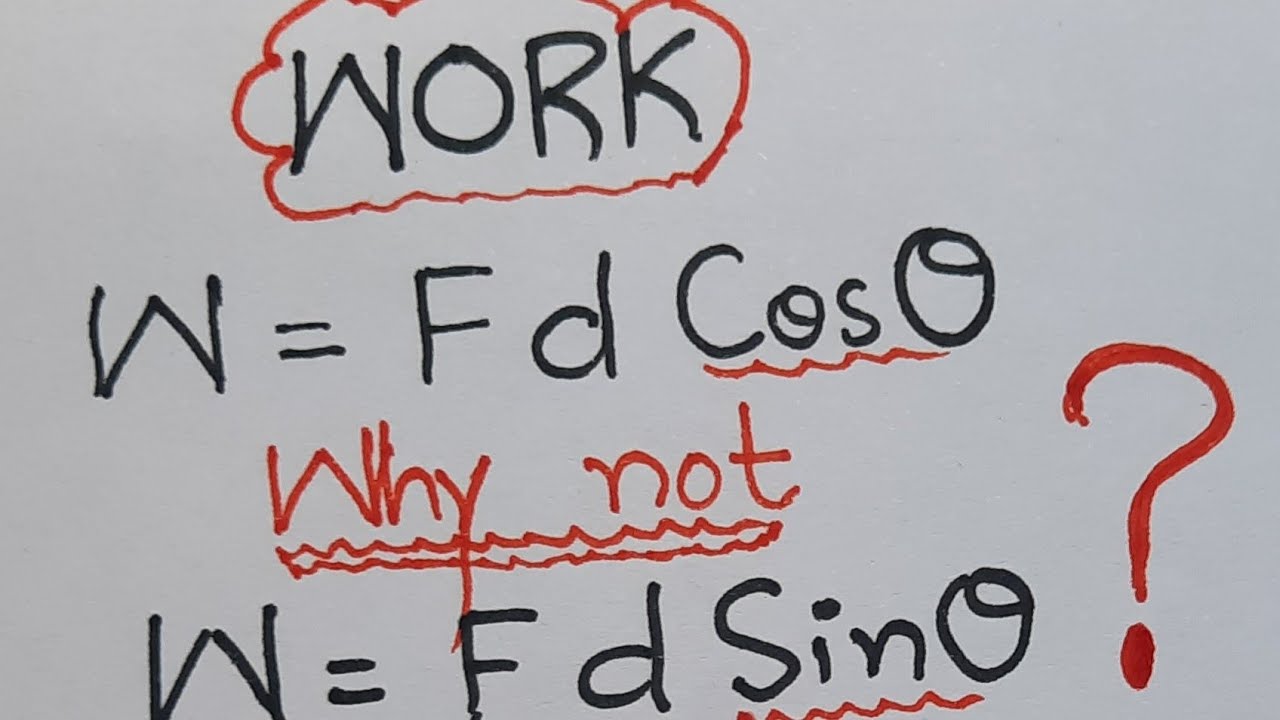 WORK
W = F d Cosθ
Why not
W = F d Sinθ ?